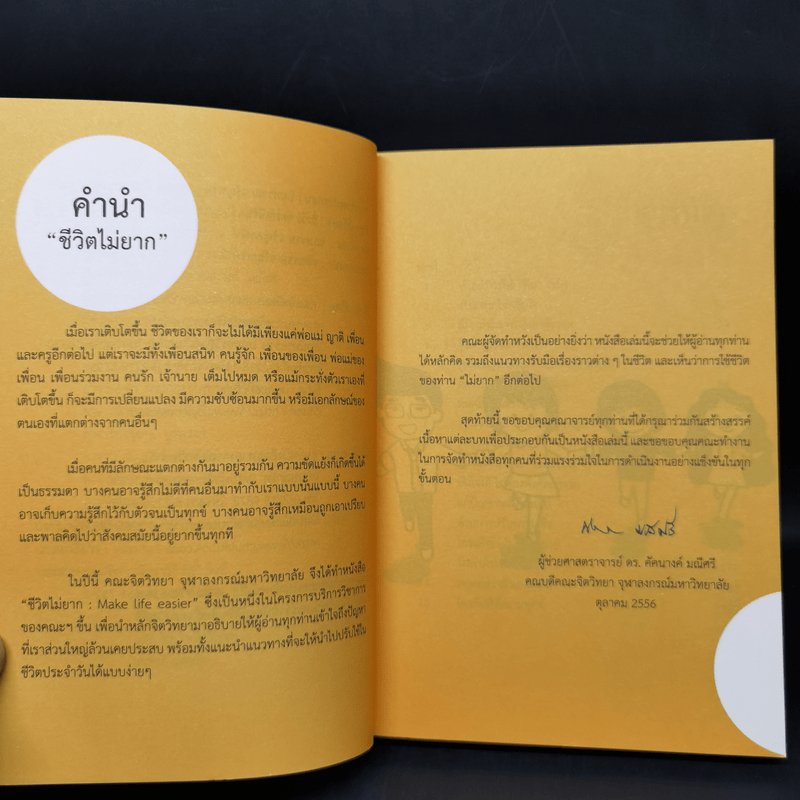 คำนำ
“ชีวิตไม่ยาก”
เมื่อเราเติบโตขึ้น ชีวิตของเราก็จะไม่ได้มีเพียงแค่พ่อแม่ ญาติ เพื่อน
และครูอีกต่อไป แต่เราจะมีทั้งเพื่อนสนิท คนรู้จัก เพื่อนของเพื่อน พ่อแม่ของ
เพื่อน เพื่อนร่วมงาน คนรัก เจ้านาย เต็มไปหมด หรือแม้กระทั่งตัวเราเองที่
เติบโตขึ้น ก็จะมีการเปลี่ยนแปลง มีความซับซ้อนมากขึ้น หรือมีเอกลักษณ์ของ
ตนเองที่แตกต่างจากคนอื่นๆ
เมื่อคนที่มีลักษณะแตกต่างกันมาอยู่รวมกัน ความขัดแย้งก็เกิดขึ้นได้
เป็นธรรมดา บางคนอาจรู้สึกไม่ดีที่คนอื่นมาทำกับเราแบบนั้นแบบนี้ บางคน
อาจเก็บความรู้สึกไว้กับตัวจนเป็นทุกข์ บางคนอาจรู้สึกเหมือนถูกเอาเปรียบ
และพาลคิดไปว่าสังคมสมัยนี้อยู่ยากขึ้นทุกที
ในปีนี้ คณะจิตวิทยา จุฬาลงกรณ์มหาวิทยาลัย จึงได้ทำหนังสือ
“ชีวิตไม่ยาก : Make life easier” ซึ่งเป็นหนึ่งในโครงการบริการวิชาการ
ของคณะฯ ขึ้น เพื่อนำหลักจิตวิทยามาอธิบายให้ผู้อ่านทุกท่านเข้าใจถึงปัญหา
ที่เราส่วนใหญ่ล้วนเคยประสบ พร้อมทั้งแนะนำแนวทางที่จะให้นำไปปรับใช้ใน
ชีวิตประจำวันได้แบบง่ายๆ
คณะผู้จัดทำหวังเป็นอย่างยิ่งว่า หนังสือเล่มนี้จะช่วยให้ผู้อ่านทุกท่าน
ได้หลักคิด รวมถึงแนวทางรับมือเรื่องราวต่าง ๆ ในชีวิต และเห็นว่าการใช้ชีวิต
ของท่าน “ไม่ยาก” อีกต่อไป
สุดท้ายนี้ ขอขอบคุณคณาจารย์ทุกท่านที่ได้กรุณาร่วมกันสร้างสรรค์
เนื้อหาแต่ละบทเพื่อประกอบกันเป็นหนังสือเล่มนี้ และขอขอบคุณคณะทำงาน
ในการจัดทำหนังสือทุกคนที่ร่วมแรงร่วมใจในการดำเนินงานอย่างแข็งขันในทุก
ขั้นตอน
ผู้ช่วยศาสตราจารย์ ดร. คัคนางค์ มณีศรี
คณบดีคณะจิตวิทยา จุฬาลงกรณ์มหาวิทยาลัย
ตุลาคม 2556